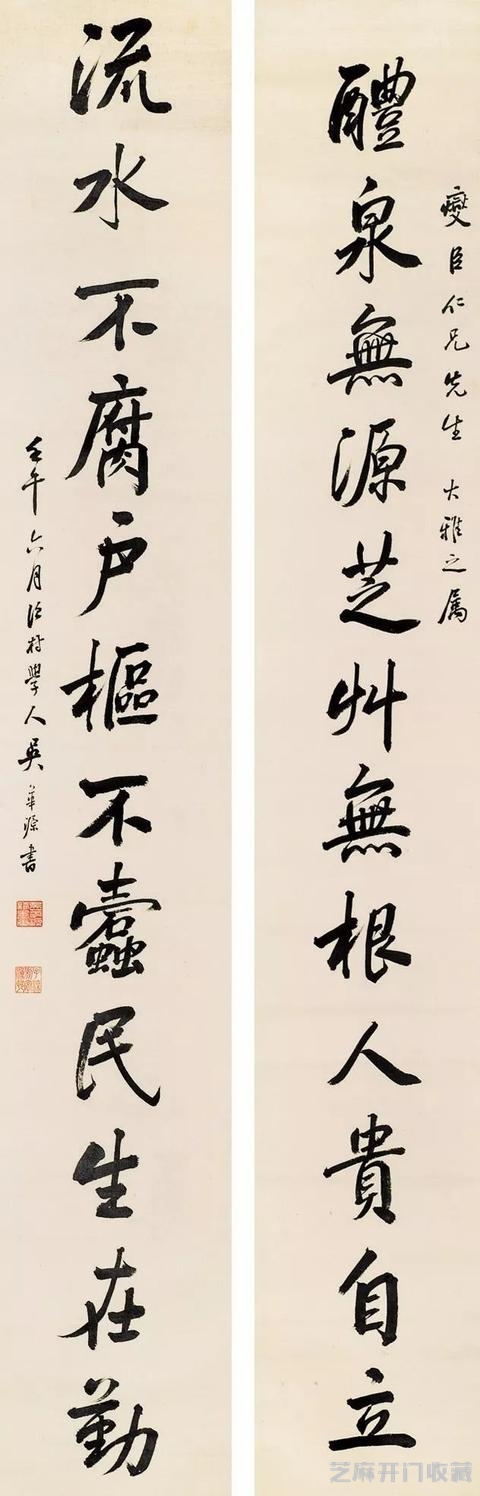 燮臣仁兄先生 大雅之属
醴泉無源芝艸無根人貴自立
流水不腐户樞不蠹民生在勤
壬午六月江村學人吳華源書
芝麻开门收藏